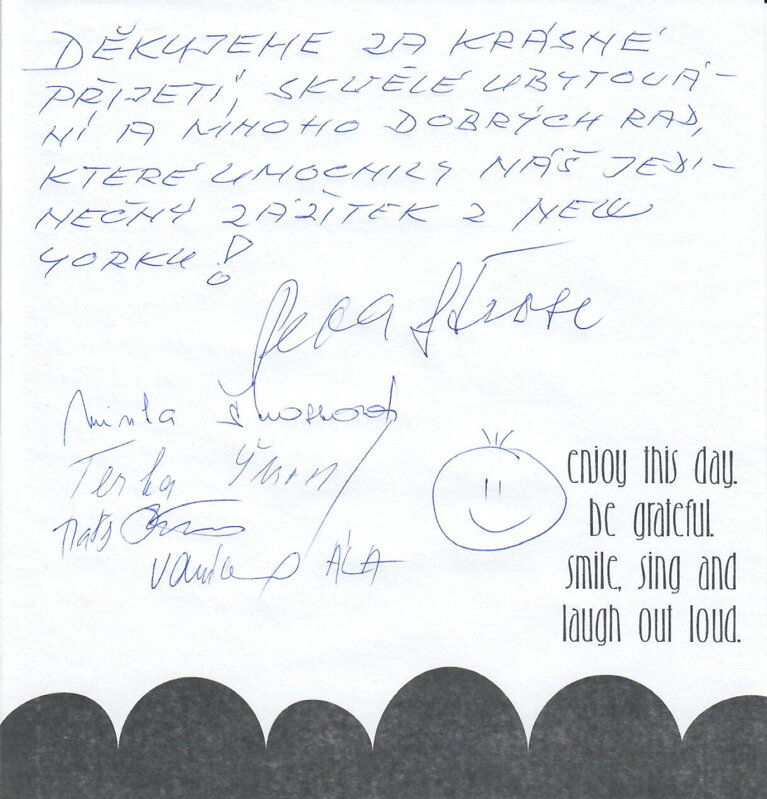 DĚKUJEME ZA KRÁSNÉ
PŘIJETÍ, SKVĚLÉ UBYTOVÁ-
NÍ A MNOHO DOBRÝCH RAD,
KTERÉ UMOCNILY NÁŠ JEDI-
NEČNÝ ZÁŽITEK Z NEW
YORKU!
Terka
ÁLA
enjoy this day.
be grateful.
smile, sing and
laugh out loud.